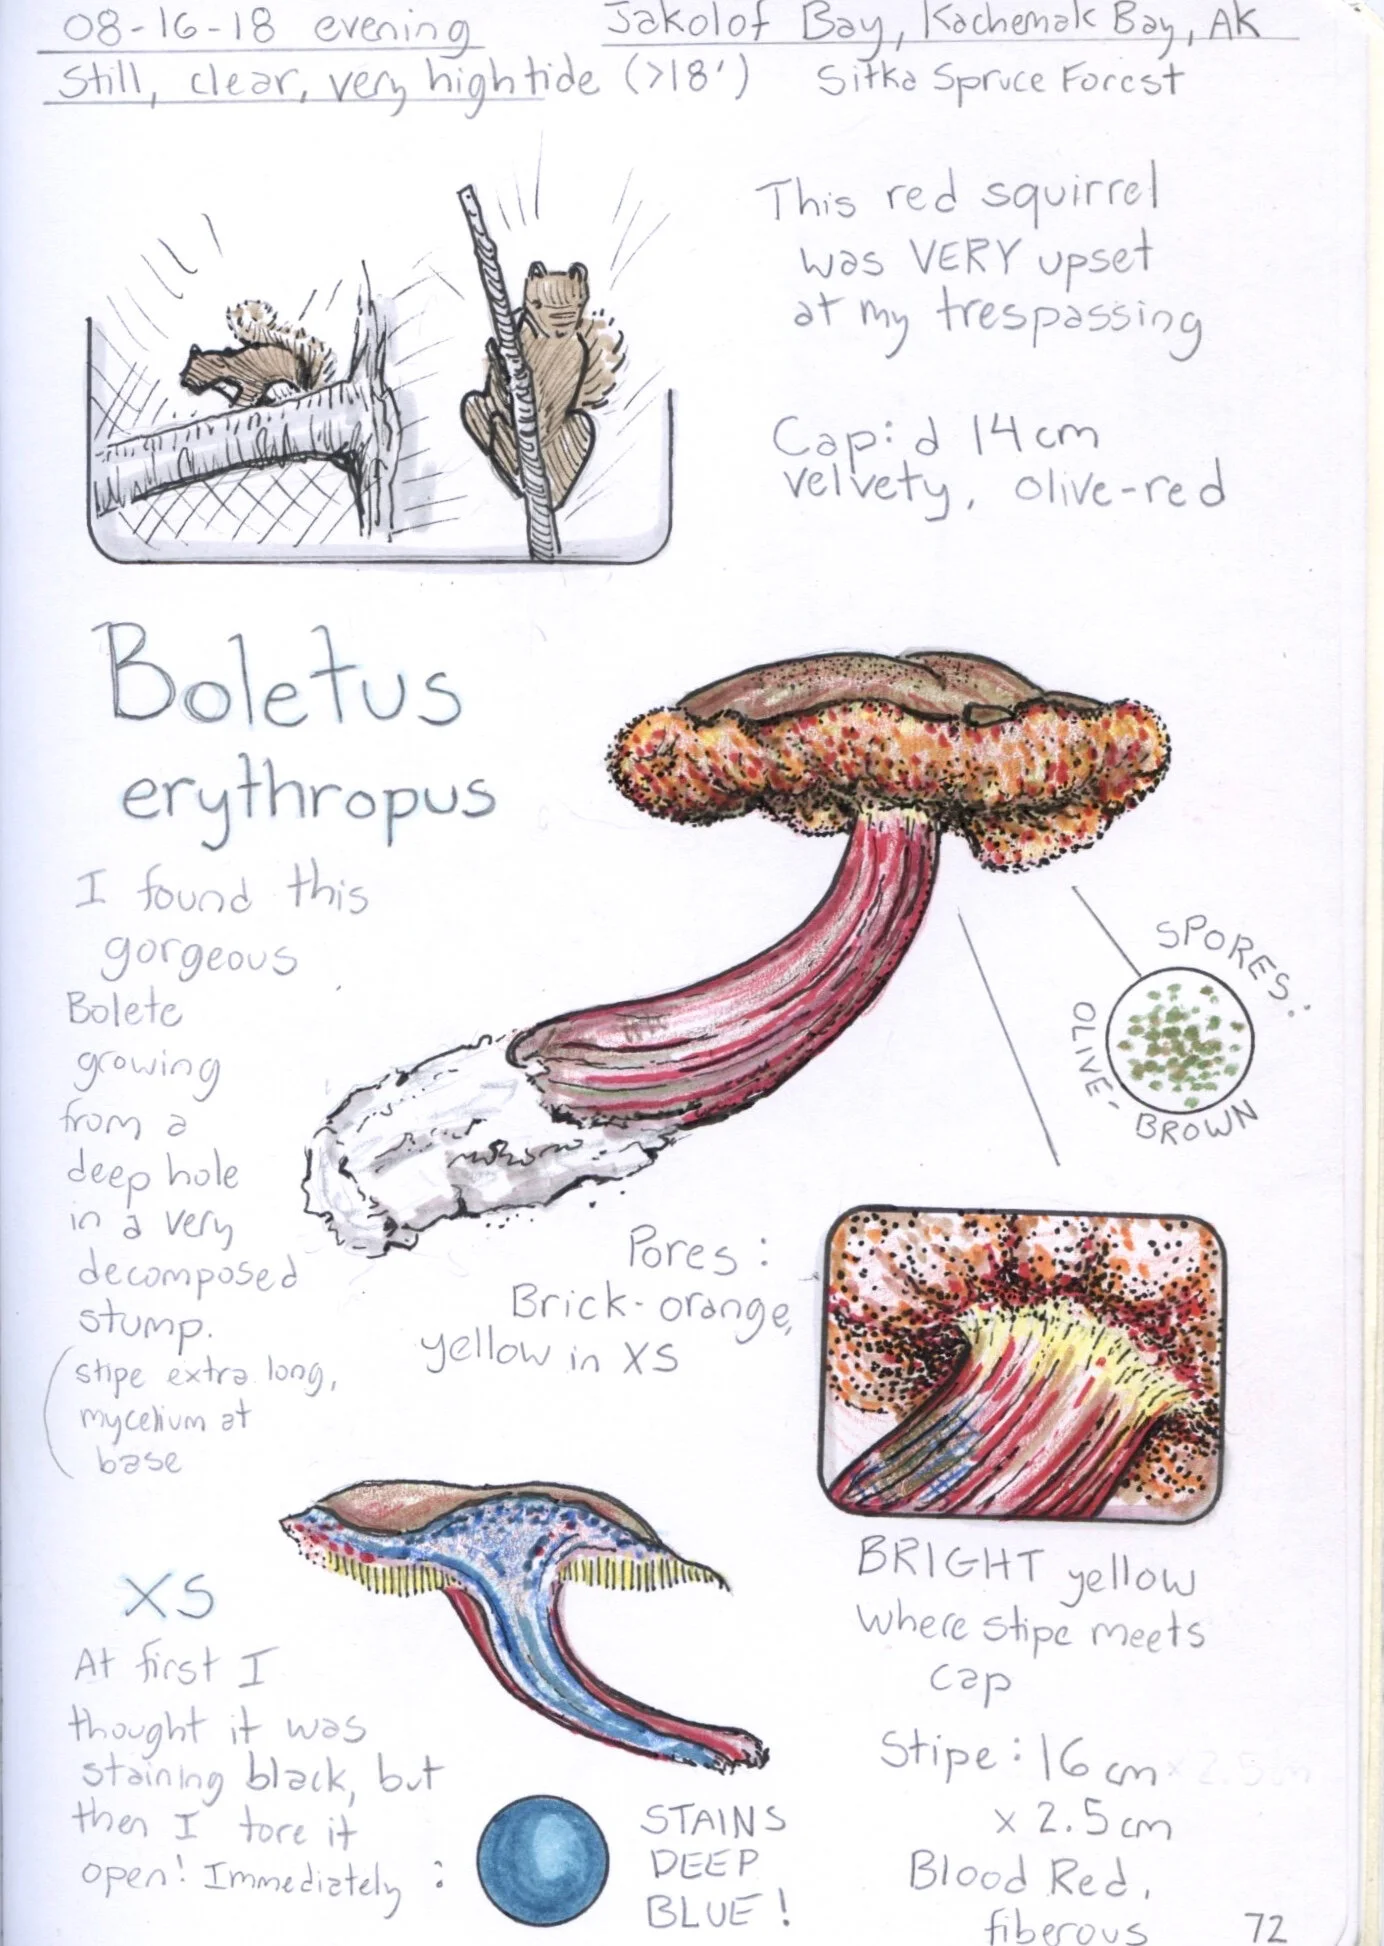 08-16-18 evening
Jakolof Bay, Kachemak Bay, AK
Still, clear, very high tide (>18')
Sitka Spruce Forest
This red squirrel
was VERY upset
at my trespassing
Cap: d 14cm
velvety, olive-red
Boletus
erythropus
I found this
gorgeous
Bolete
growing
from a
deep hole
in a very
decomposed
stump.
(stipe extra long,
mycelium at
base
SPORES:
OLIVE-
BROWN
Pores:
Brick-orange,
yellow in XS
BRIGHT yellow
where stipe meets
cap
Stipe: 16 cm x 2.5cm
x 2.5cm
Blood Red,
fiberous
XS
At first I
thought it was
staining black, but
then I tore it
open! Immediately:
STAINS
DEEP
BLUE!
72